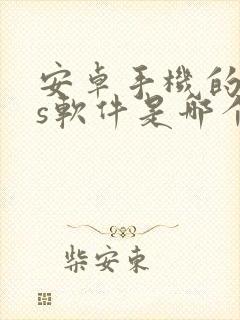 安卓手機的
s軟件是哪个
柴安東